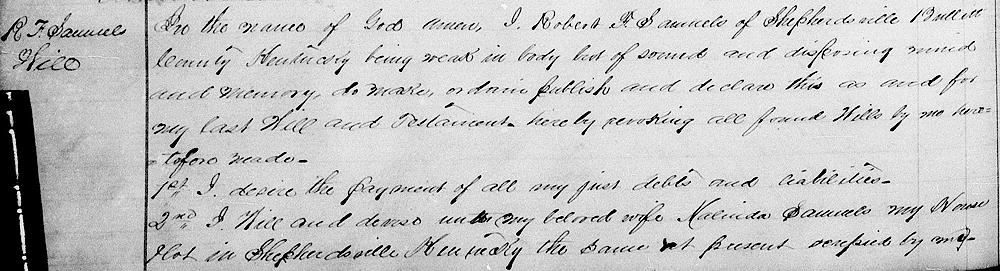 R F Samuels
Will
In the name of God amen, I. Robert F. Samuels of Shepherdsville Bullitt
County Kentucky being weak in body but of sound and disposing mind
and memory, do make, ordain publish and declare this as and for
my last Will and Testament- hereby revoking all found Wills by me here-
-tofore made-
1st I. desire the payment of all my just debts and liabilities-
2nd I. Will and devise unto my beloved wife Malinda Samuels my House
& lot in Shepherdsville Kentucky the same at present occupied by me-